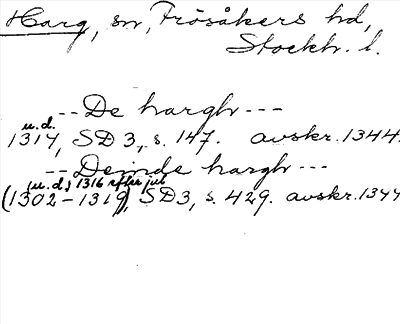 Harg, sn, Frösåkers hd,
Stockh. l.
--- De hargh ---
u.d.
1314, SD 3, s. 147. avskr. 1344.
--- Deinde hargh ---
(u.d.) 1316 efter jul
(1302-1319), SD3, s. 429. avskr. 1344